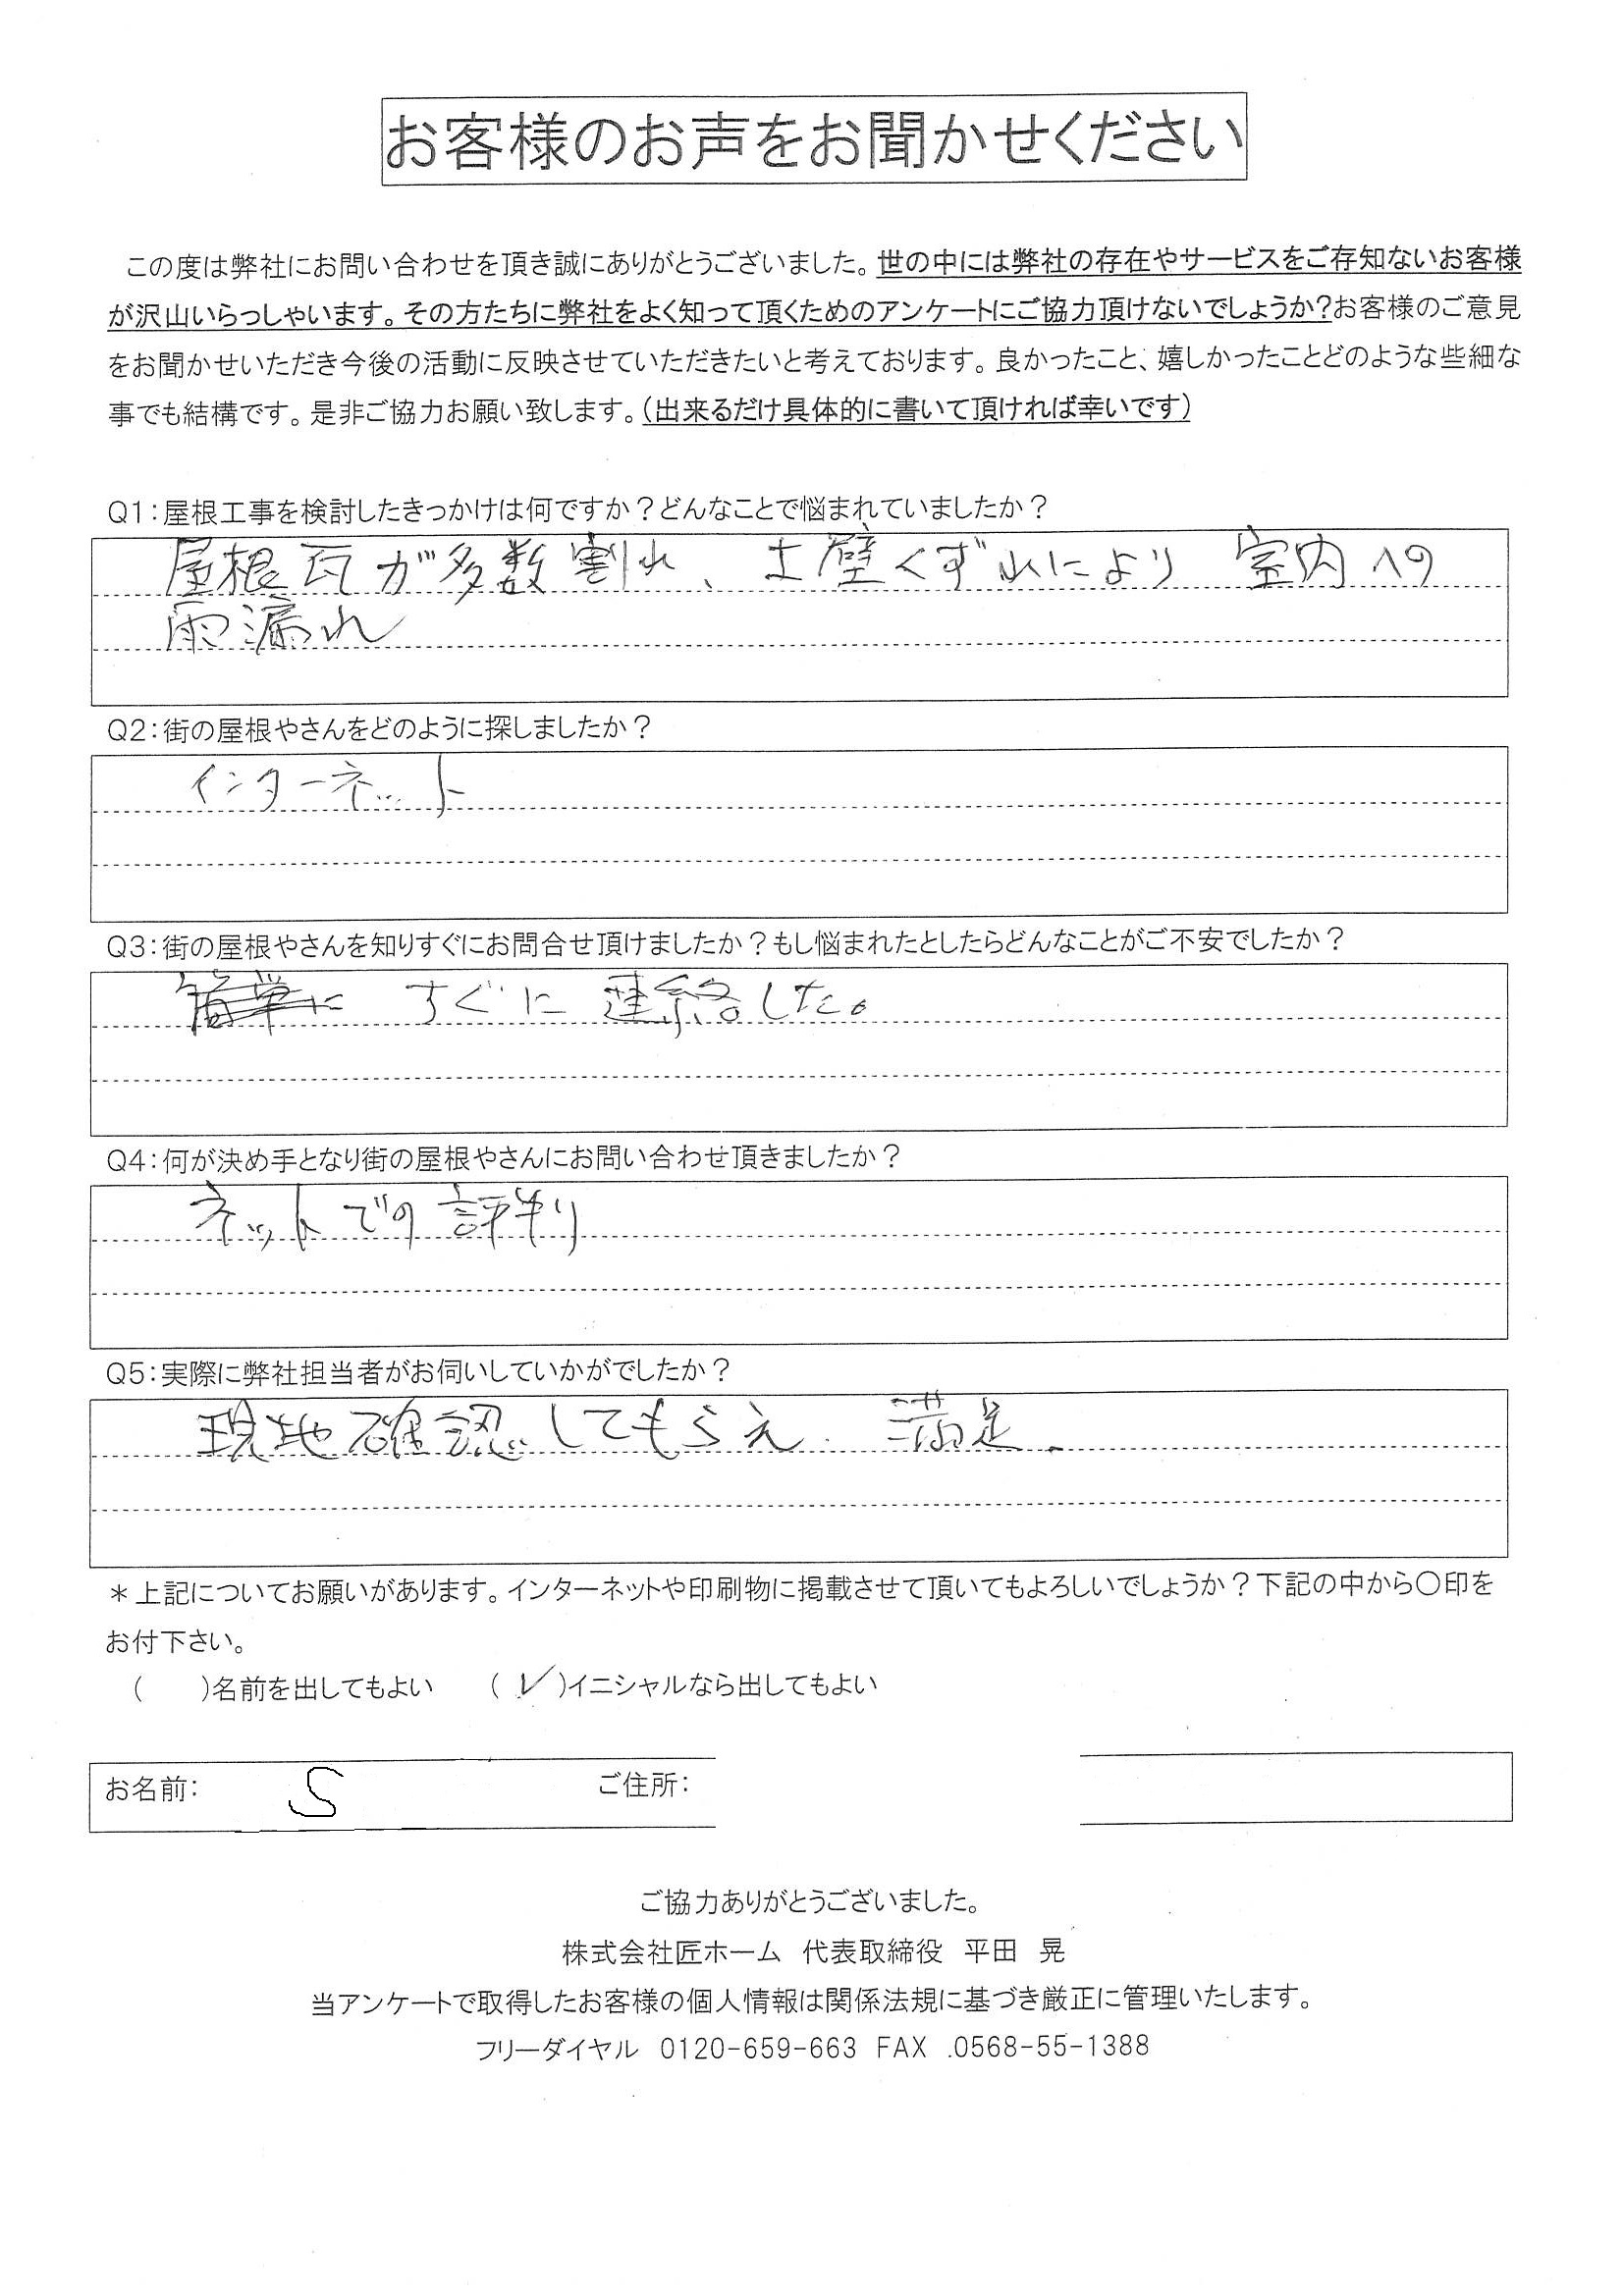 お客様のお声をお聞かせください
この度は弊社にお問い合わせを頂き誠にありがとうございました。世の中には弊社の存在やサービスをご存知ないお客様
が沢山いらっしゃいます。その方たちに弊社をよく知って頂くためのアンケートにご協力頂けないでしょうか?お客様のご意見
をお聞かせいただき今後の活動に反映させていただきたいと考えております。良かったこと、嬉しかったことどのような些細な
事でも結構です。是非ご協力お願い致します。(出来るだけ具体的に書いて頂ければ幸いです)
Q1:屋根工事を検討したきっかけは何ですか?どんなことで悩まれていましたか?
屋根瓦が多数割れ、土壁くずれにより 室内への
雨漏れ
Q2:街の屋根やさんをどのように探しましたか?
インターネット
Q3:街の屋根やさんを知りすぐにお問合せ頂けましたか?もし悩まれたとしたらどんなことがご不安でしたか?
すぐに 連絡した。
Q4:何が決め手となり街の屋根やさんにお問い合わせ頂きましたか?
ネットでの評判
Q5:実際に弊社担当者がお伺いしていかがでしたか?
現地確認してもらえ. 満足.
*上記についてお願いがあります。インターネットや印刷物に掲載させて頂いてもよろしいでしょうか?下記の中から〇印を
お付下さい。
(　　)名前を出してもよい　(✓)イニシャルなら出してもよい
お名前: S　ご住所:
ご協力ありがとうございました。
株式会社匠ホーム　代表取締役　平田　晃
当アンケートで取得したお客様の個人情報は関係法規に基づき厳正に管理いたします。
フリーダイヤル　0120-659-663 FAX .0568-55-1388